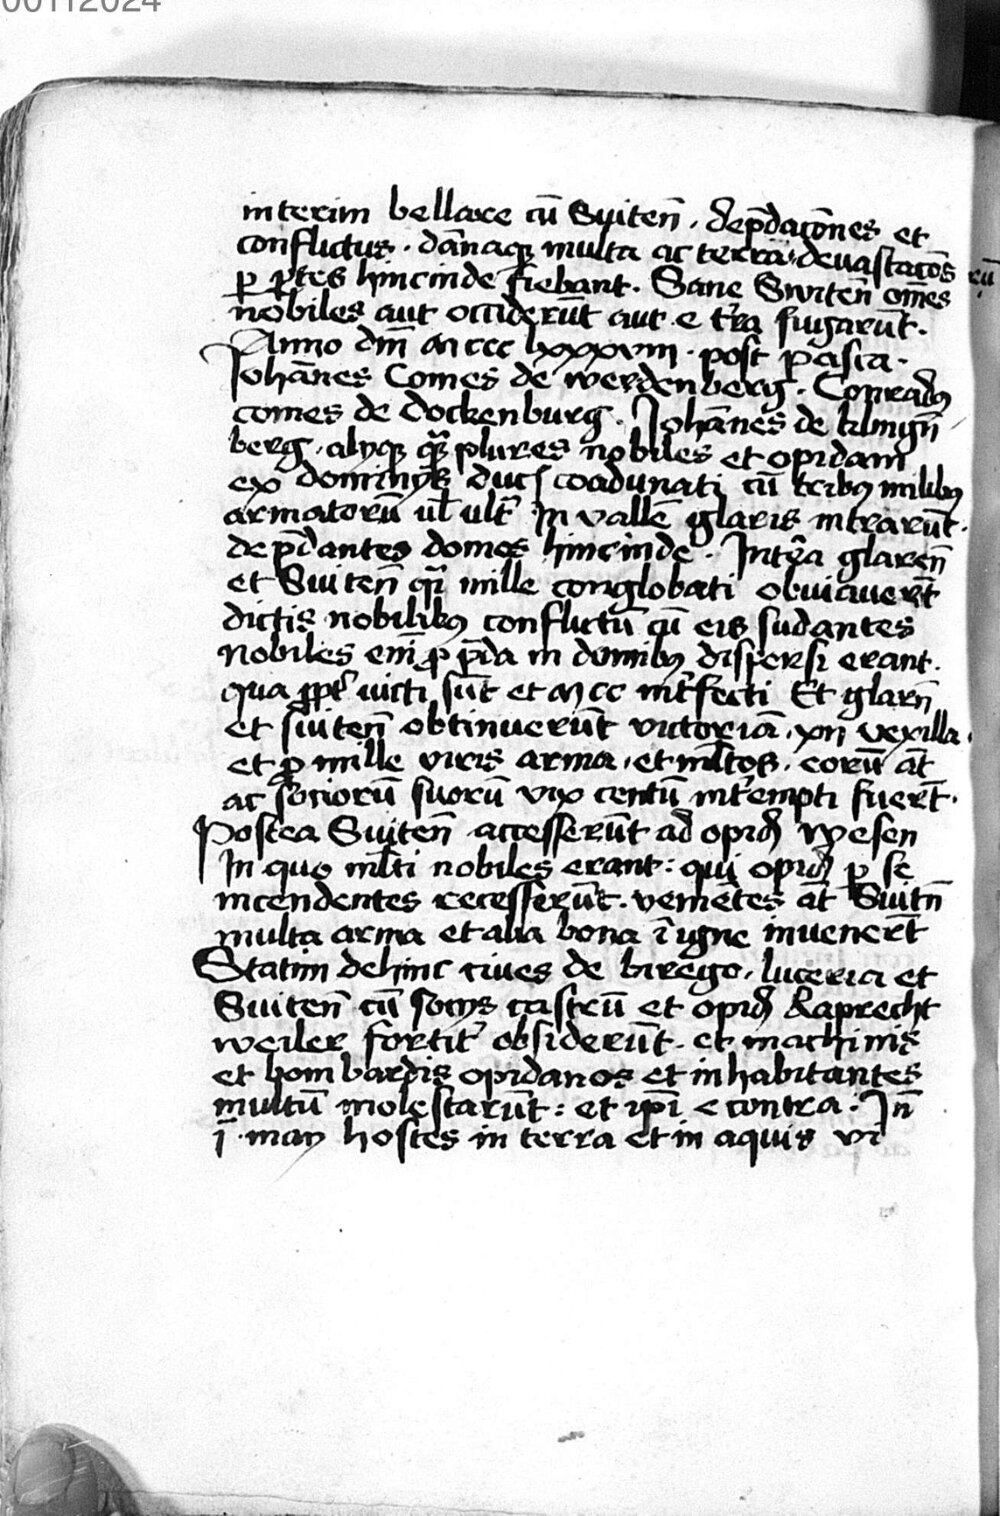 00112024
interim bellare cū Suiteñ . dep̄dac̄ones et
conflictus . dāpnaq̄ multa ac terrar̄ deuastac̄oēs
ꝑ ꝑtes hincinde fiebant . Sane Switeñ om̄es
nobiles aut occiderūt aut e tr̄a fugarūt .
Anno dm̄ m ccc lxxxviii . post pasca .
Johānes Comes de werdenberg . Conradꝰ
comes de dockenburg . Johānes de klingn̄
berg . alijq̄ q̄ꝫ plures nobiles et opidani
ex dominijs duc̄ coadunati cū tribꝰ milibꝰ
armatorū ul̄ ultr̄ In vallē glaris intrarūt .
dep̄dantes domos hincinde . Intr̄ea glareñ
et Suiteñ q̄i mille conglobati obuiauer̄t
dictis nobilibꝰ conflictū cū eis sudantes
Nobiles em̄ ꝓ p̄da in domibꝰ dispersi erant .
qua ꝓpt̄ victi sūt et m cc int̄fecti Et glarn̄
et suiteñ obtinuerūt victoriā . xii vexilla .
et ꝓ mille viris arma . et ml̄tos . eorū āt
ac sociorū suorū vix centū int̄empti fuer̄t .
Postea Suiteñ accesserūt ad opid̄ wesen
In quo ml̄ti nobiles erant : qui opid̄ ꝑ se
incendentes recesserūt . veniētes āt Suitn̄
multa arma et alia bona ī igne inuener̄t
Statim dehinc ciues de turego . luceria et
Suiteñ cū socijs castrū et opid̄ Raprecht
weiler fortit̄ obsiderūt . et machinis
et bombardis opidanos et inhabitantes
multū molestarūt : et ip̄i e contra . In̄
ī . maij hostes in terra et in aquis vi